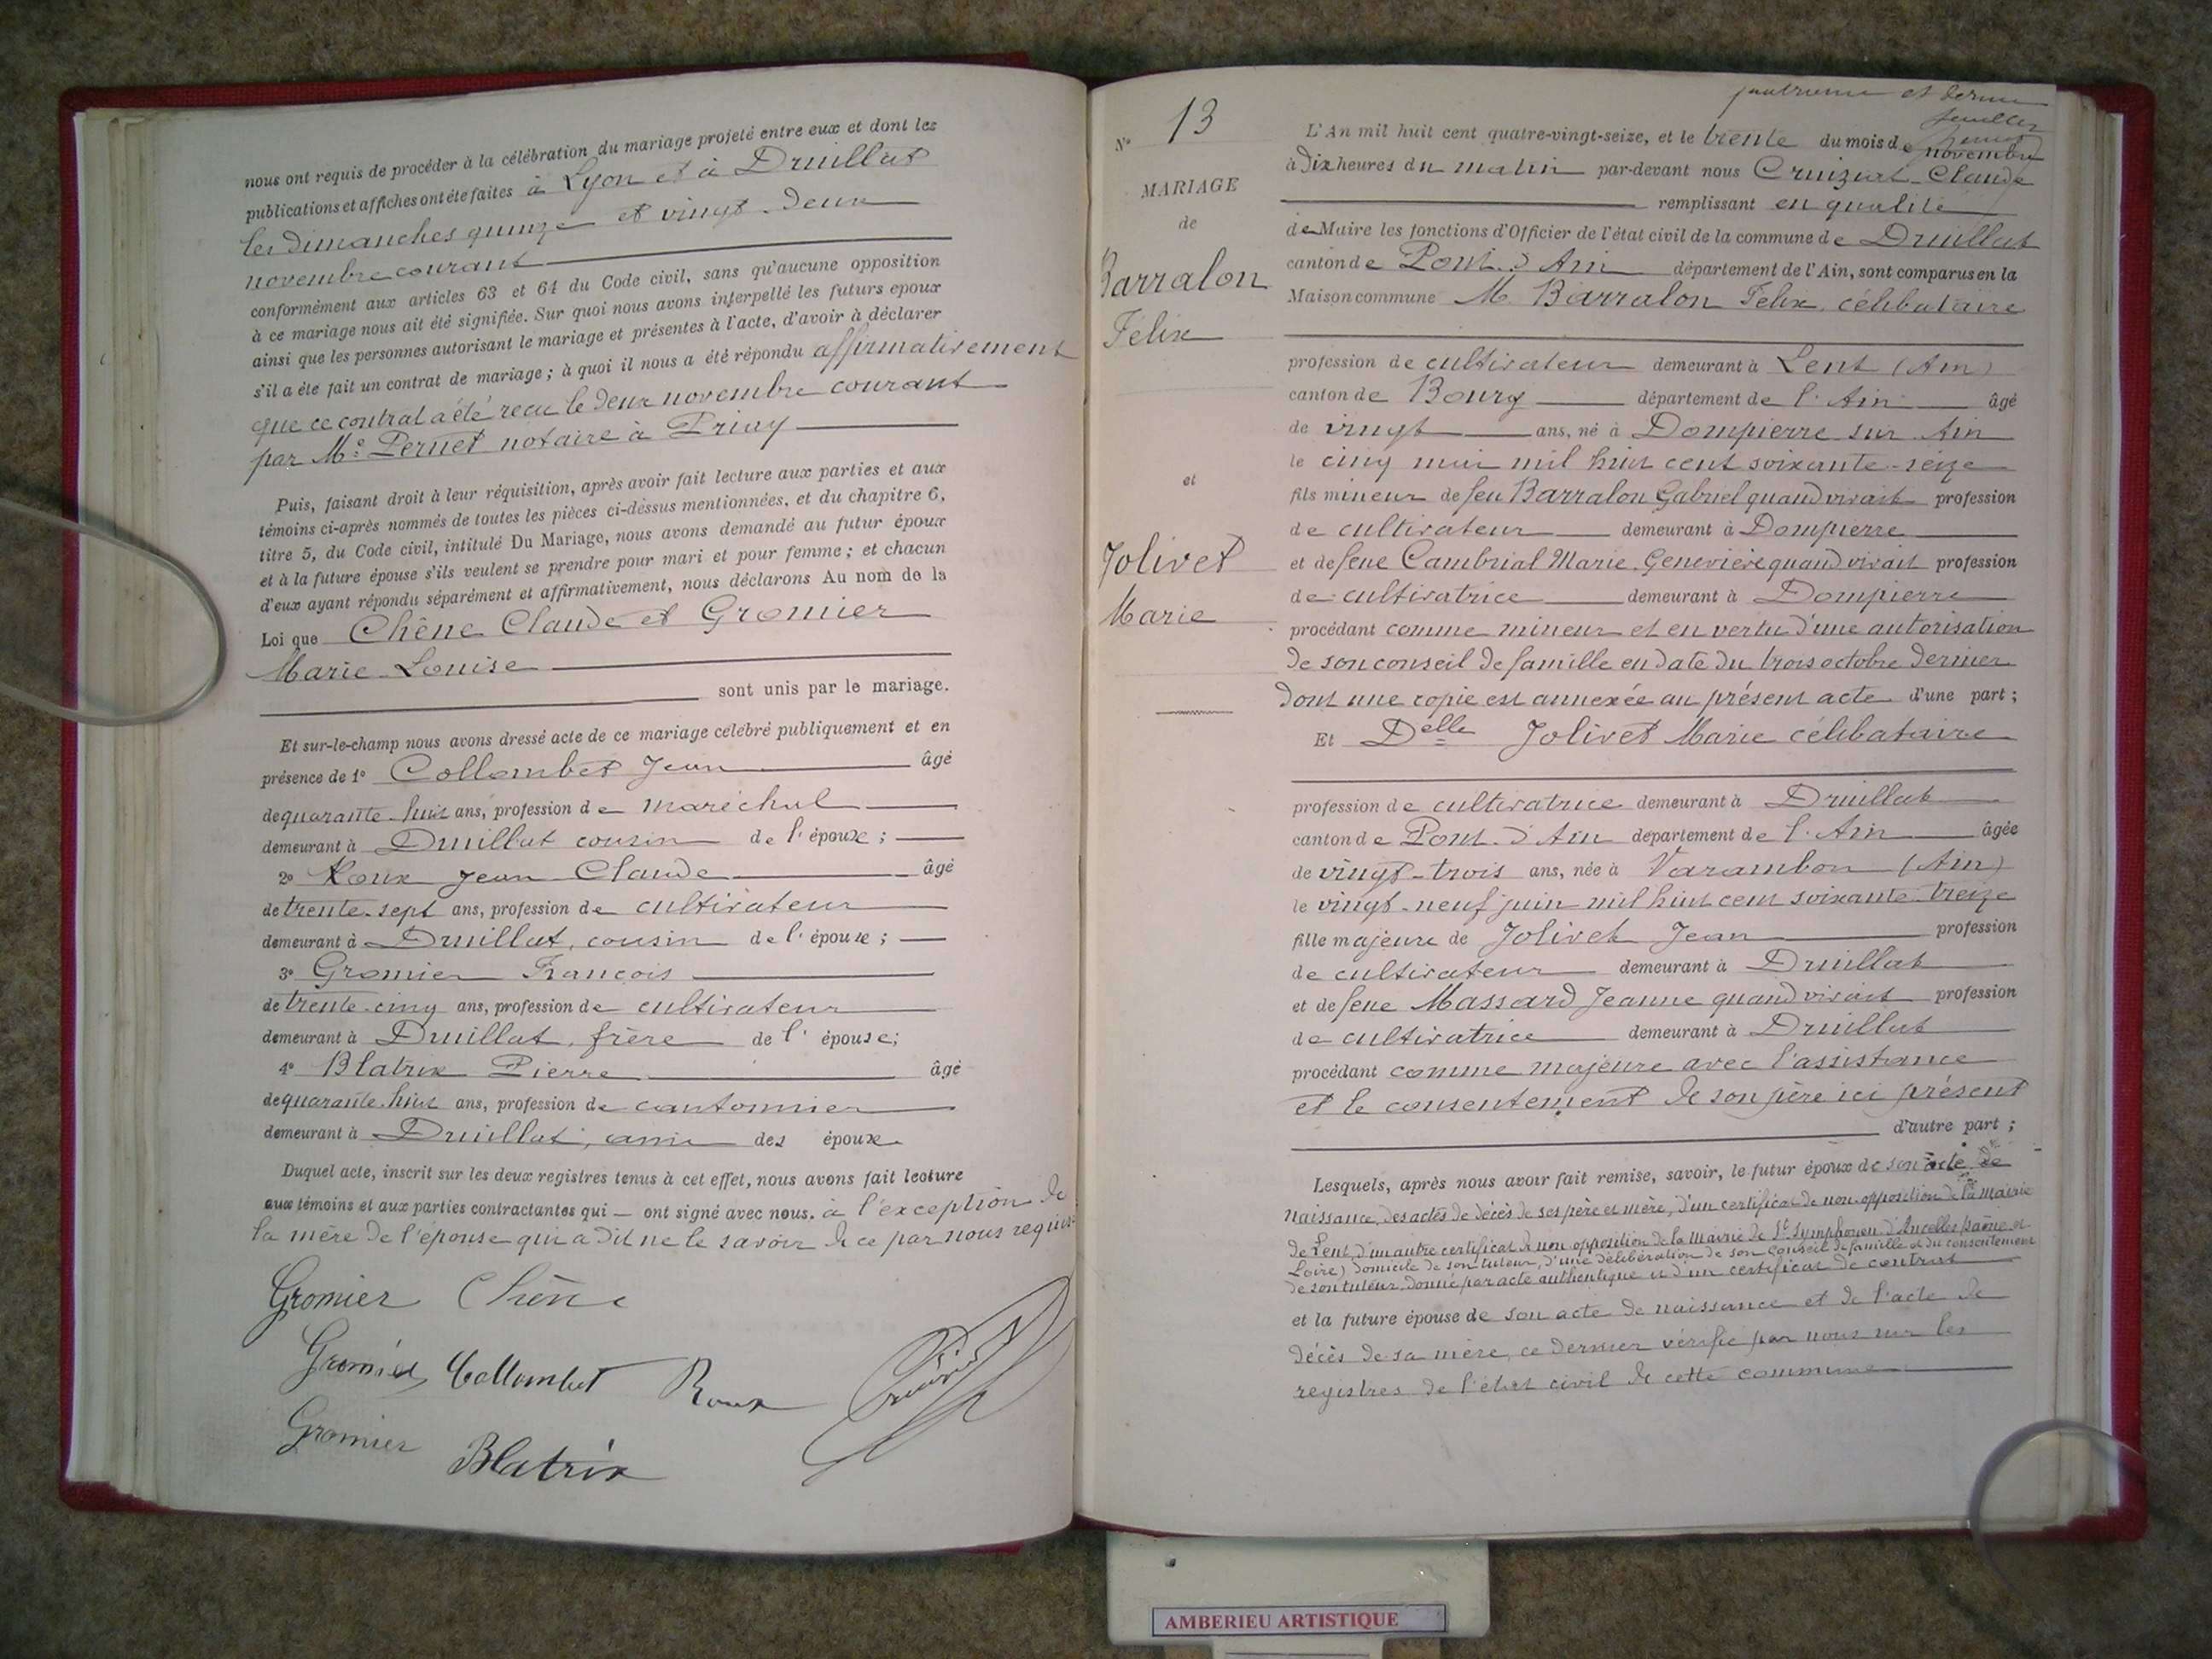 nous ont requis de procéder à la célébration du mariage projeté entre eux et dont les
publications et affiches ont été faites à Lyon et à Druillat
les dimanches quinze et vingt-deux
novembre courant
conformément aux articles 63 et 64 du Code civil, sans qu'aucune opposition
à ce mariage nous ait été signifiée. Sur quoi nous avons interpellé les futurs époux
ainsi que les personnes autorisant le mariage et présentes à l'acte, d'avoir à déclarer
s'il a été fait un contrat de mariage ; à quoi il nous a été répondu affirmativement
que ce contrat a été reçu le deux novembre courant
par Me Pernet notaire à Priay
Puis, faisant droit à leur réquisition, après avoir fait lecture aux parties et aux
témoins ci-après nommés de toutes les pièces ci-dessus mentionnées, et du chapitre 6,
titre 5, du Code civil, intitulé Du Mariage, nous avons demandé au futur époux
et à la future épouse s'ils veulent se prendre pour mari et pour femme ; et chacun
d'eux ayant répondu séparément et affirmativement, nous déclarons Au nom de la
Loi que Chêne Claude et Gromier
Marie-Louise
sont unis par le mariage.
Et sur-le-champ nous avons dressé acte de ce mariage célébré publiquement et en
présence de 1º Collombet Jean âgé
de quarante-huit ans, profession de maréchal
demeurant à Druillat cousin de l'épouse ;
2º Roux Jean Claude âgé
de trente-sept ans, profession de cultivateur
demeurant à Druillat, cousin de l'épouse ;
3º Gromier François
de trente-cinq ans, profession de cultivateur
demeurant à Druillat, frère de l'épouse ;
4º Blatrix Pierre âgé
de quarante-huit ans, profession de cantonnier
demeurant à Druillat, ami des époux
Duquel acte, inscrit sur les deux registres tenus à cet effet, nous avons fait lecture
aux témoins et aux parties contractantes qui — ont signé avec nous. à l'exception de
la mère de l'épouse qui a dit ne le savoir de ce par nous requise
Gromier Chêne
Gromier Collombet Roux
Gromier Blatrix
quatrième et dernier
feuillet
Nº 13
MARIAGE
de
Barralon
Felix
et
Jolivet
Marie
L'An mil huit cent quatre-vingt-seize, et le trente du mois de novembre
à dix heures du matin par-devant nous Cruiziat Claude
remplissant en qualité
de Maire les fonctions d'Officier de l'état civil de la commune de Druillat
canton de Pont-d'Ain département de l'Ain, sont comparus en la
Maison commune M. Barralon Felix, célibataire
profession de cultivateur demeurant à Lent (Ain)
canton de Bourg département de l'Ain âgé
de vingt ans, né à Dompierre sur Ain
le cinq mai mil huit cent soixante-seize
fils mineur de feu Barralon Gabriel quand vivait profession
de cultivateur demeurant à Dompierre
et de feue Cambrial Marie Geneviève quand vivait profession
de cultivatrice demeurant à Dompierre
procédant comme mineur et en vertu d'une autorisation
de son conseil de famille en date du trois octobre dernier
dont une copie est annexée au présent acte d'une part ;
Et Delle Jolivet Marie célibataire
profession de cultivatrice demeurant à Druillat
canton de Pont-d'Ain département de l'Ain âgée
de vingt-trois ans, née à Varambon (Ain)
le vingt-neuf juin mil huit cent soixante-treize
fille majeure de Jolivet Jean profession
de cultivateur demeurant à Druillat
et de feue Massard Jeanne quand vivait profession
de cultivatrice demeurant à Druillat
procédant comme majeure avec l'assistance
et le consentement de son père ici présent
d'autre part ;
Lesquels, après nous avoir fait remise, savoir, le futur époux de son acte de
naissance, des actes de décès de ses père et mère, d'un certificat de non opposition de la mairie
de Lent, d'un autre certificat de non opposition de la mairie de St Symphorien d'Ancelles (Saône et
Loire) domicile de son tuteur, d'une délibération de son conseil de famille et du consentement
de son tuteur, donné par acte authentique et d'un certificat de contrat
et la future épouse de son acte de naissance et de l'acte de
décès de sa mère, ce dernier vérifié par nous sur les
registres de l'état civil de cette commune
AMBERIEU ARTISTIQUE